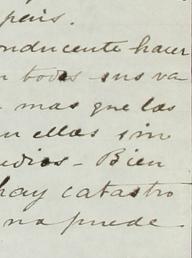 pais.
onducente hacer
n todas sus va
mas que las
n ellas sin
udios - Bien
hay catastro
na puede